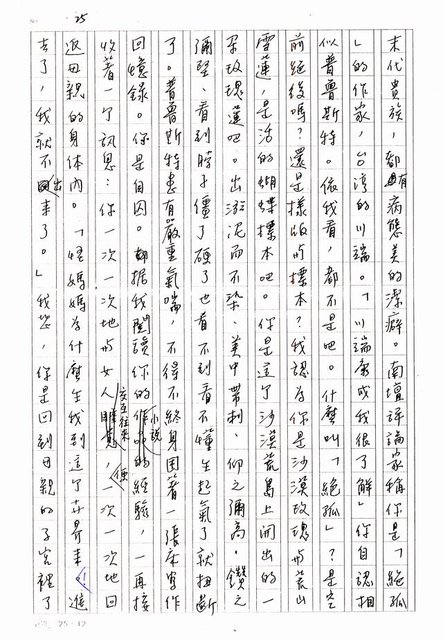 25
末代貴族，都有病態美的潔癖。南壇評論家稱你是「絕孤
」的作家，台灣的川端。「川端康成我很了解」你自認相
似普魯斯特。依我看，都不是吧。什麼叫「絕孤」？是空
前絕後嗎？還是樣版的標本？我認為你是沙漠玫瑰的荒山
雪蓮，是活的蝴蝶標本吧。你是這了沙漠荒島上開出的一
朵玫瑰蓮吧。出淤泥而不染、美中帶刺，仰之彌高，鑽之
彌堅、看到脖子僵了硬了也看不到看不懂生起氣了就扭斷
了。普魯斯特患有嚴重氣喘，不得不終身困著一張床寫作
回憶錄。你是自囚。據我閱讀你的小說的經驗，一再接
收著一个訊息：你一次一次地與女人交互往來，便一次一次地回
返母親的身體內。「怪媽媽為什麼生我到這了世界來！進
去了，我就不出來了。」我恐，你是回到母親的子宮裡了